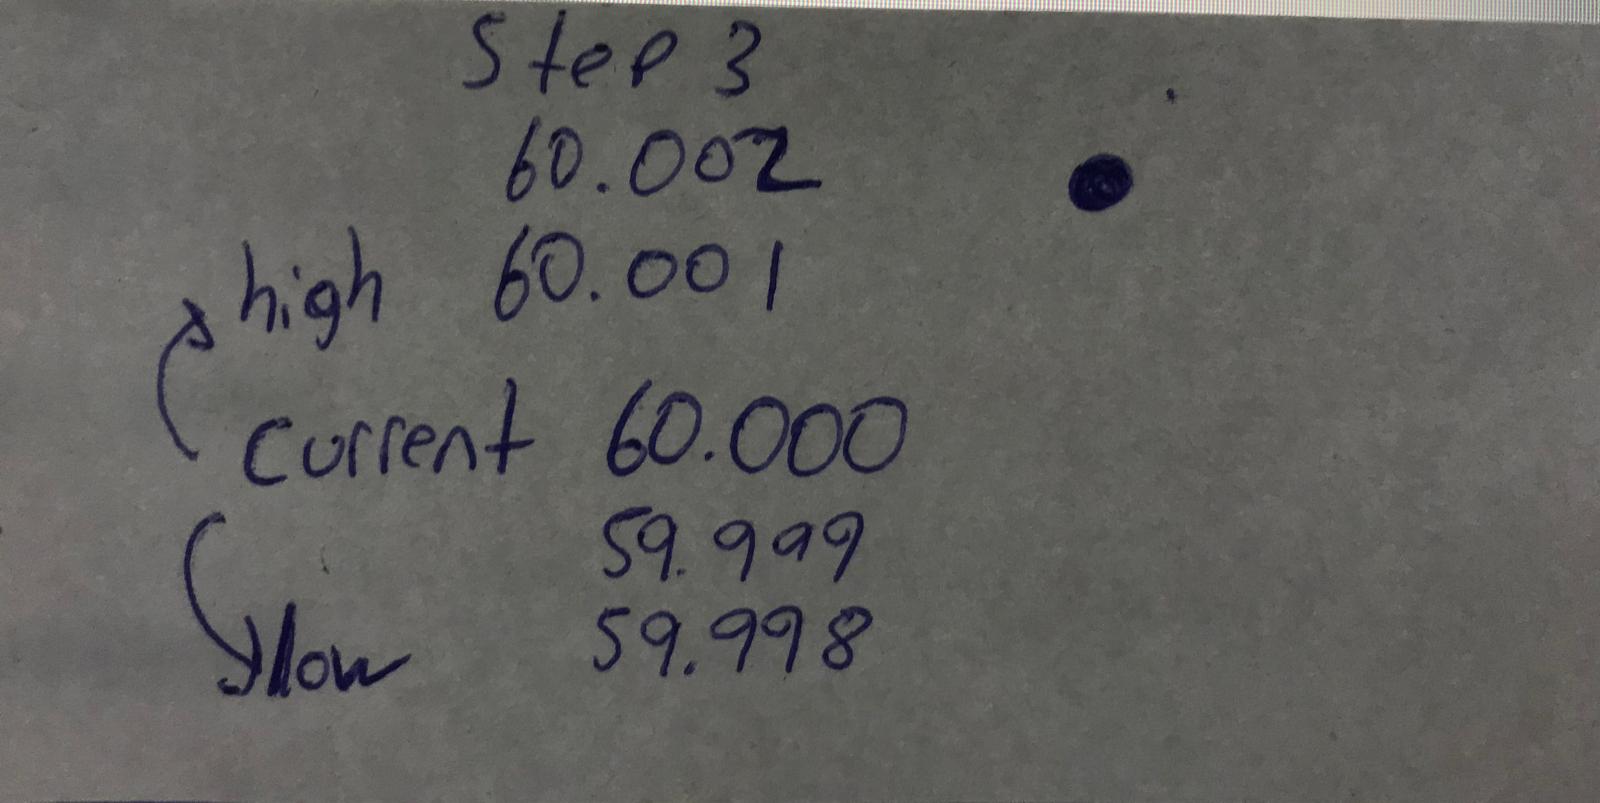 Step 3
60.002
high 60.001
current 60.000
59.999
low 59.998